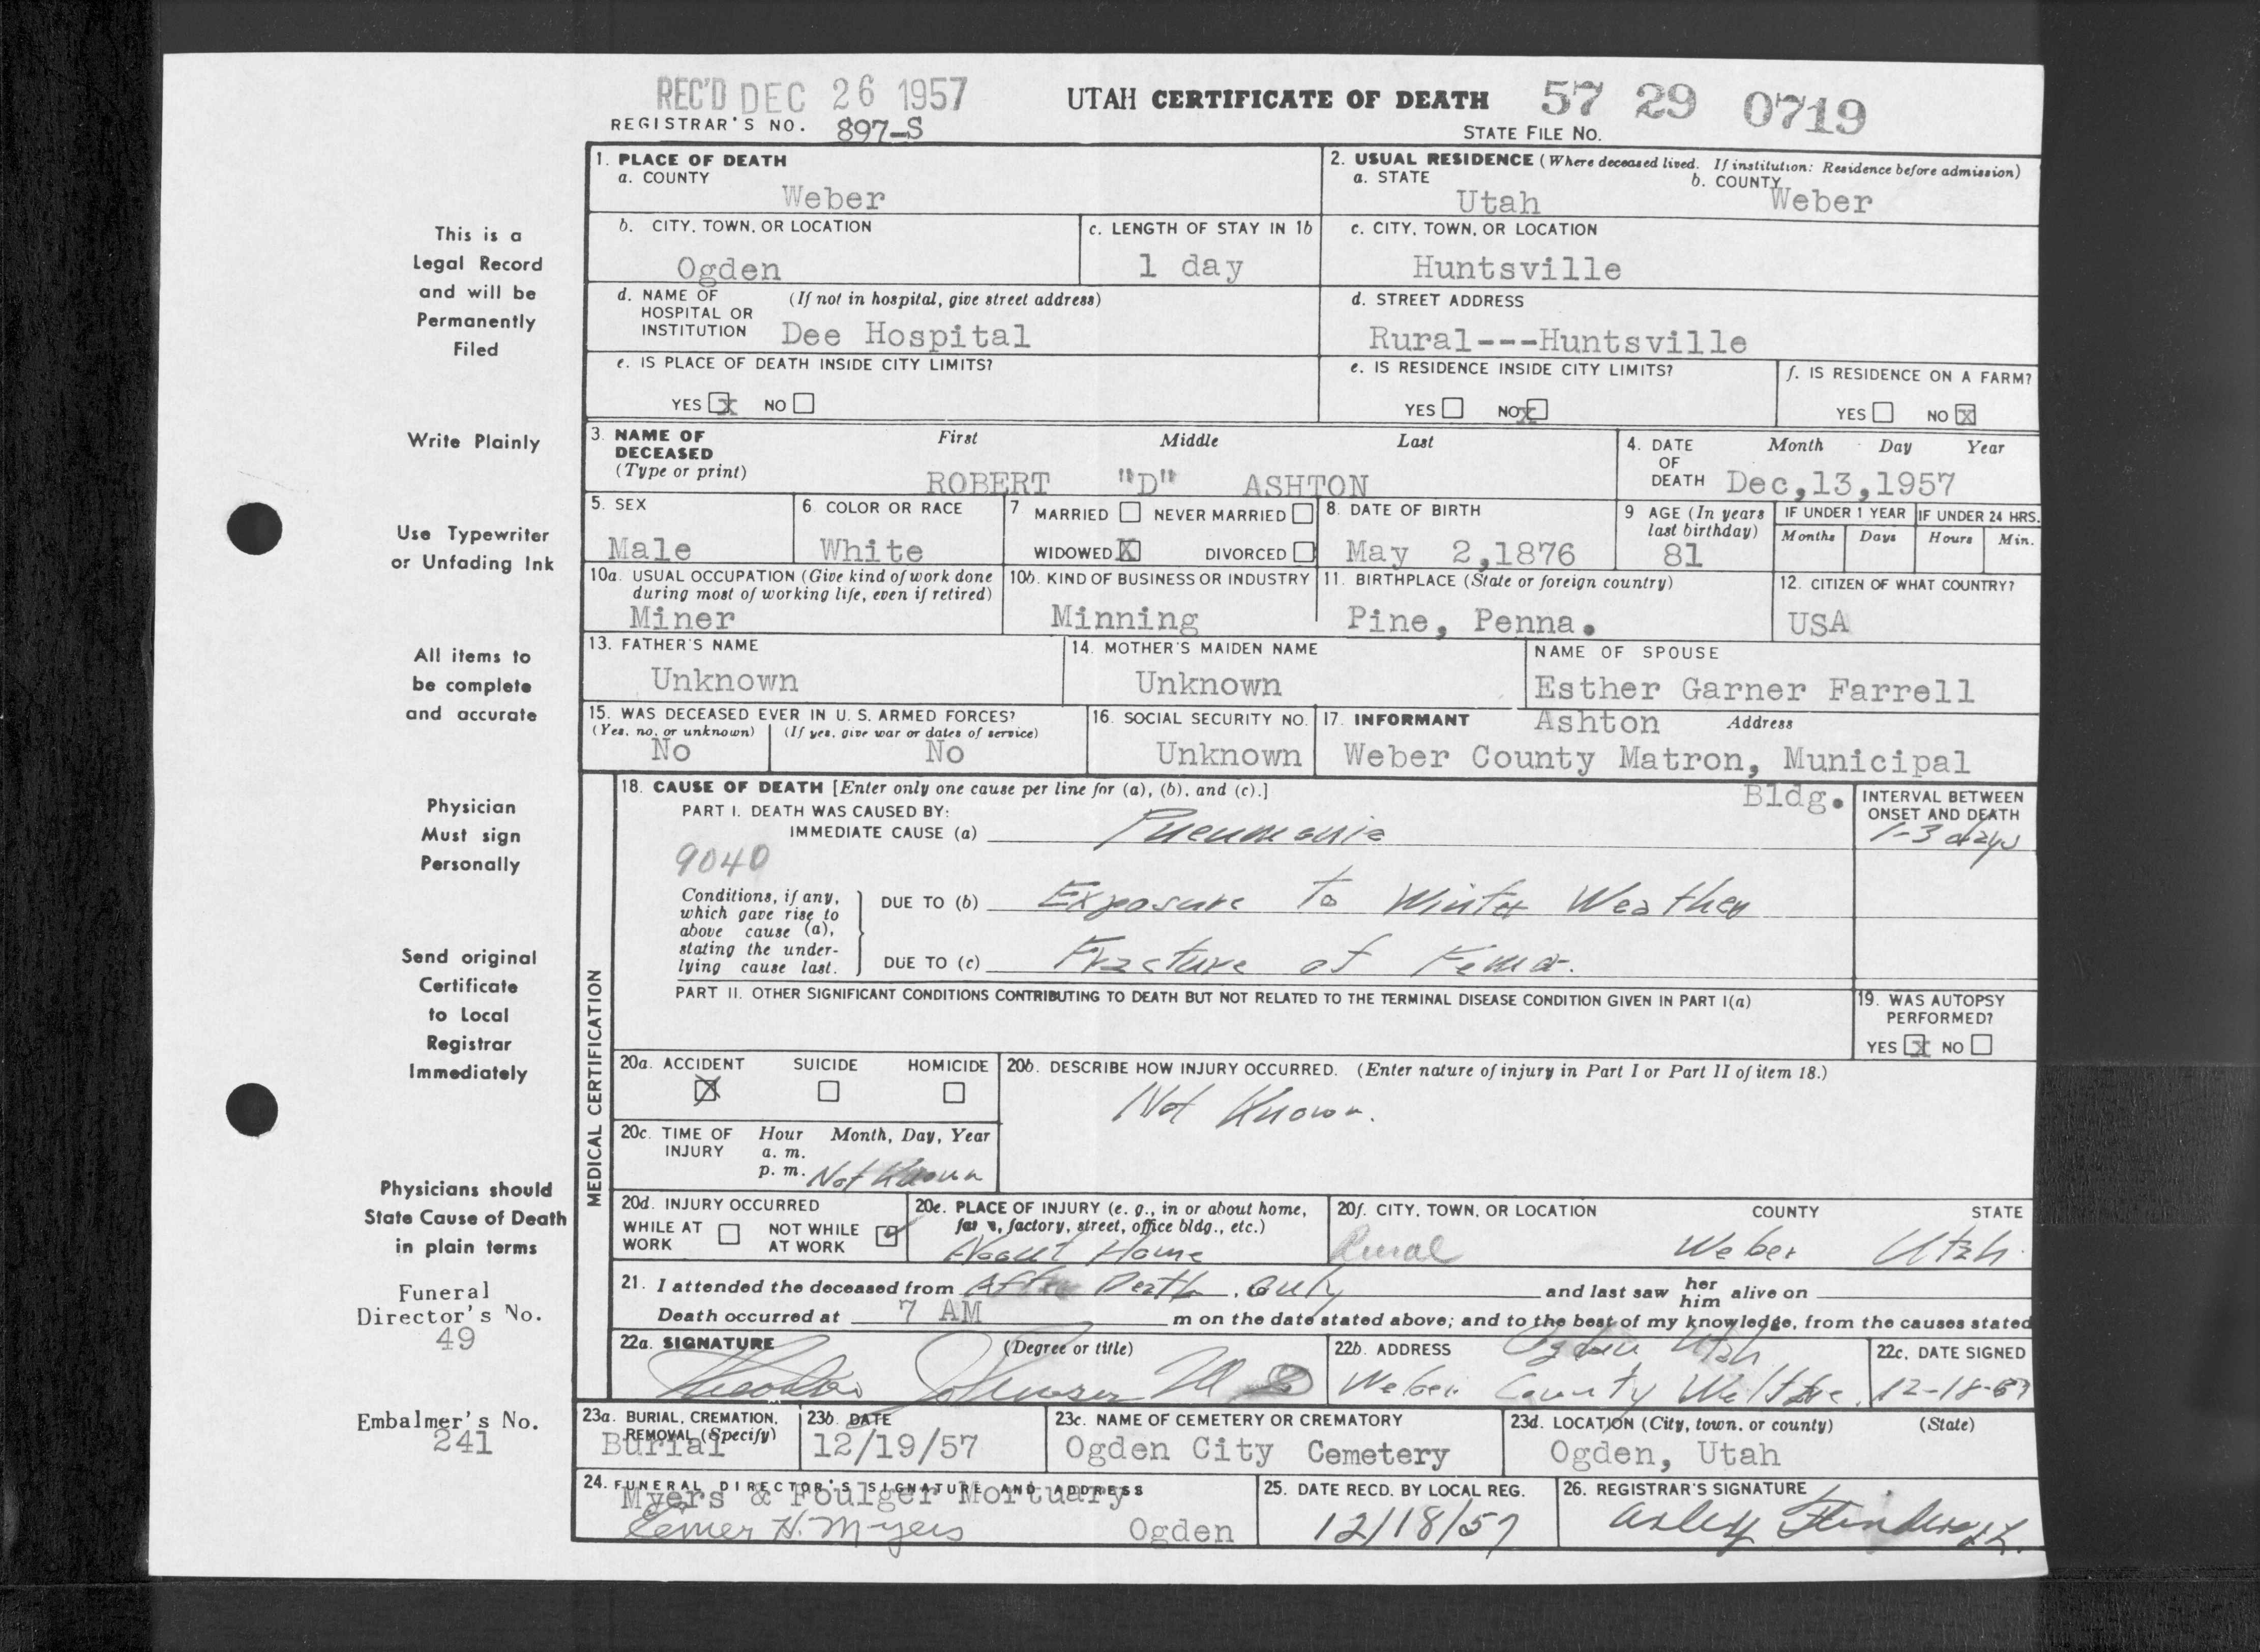 REC'D DEC 26 1957
UTAH CERTIFICATE OF DEATH 57 29 0719
REGISTRAR'S NO. 897-S
STATE FILE NO.
This is a
Legal Record
and will be
Permanently
Filed
Write Plainly
Use Typewriter
or Unfading Ink
All items to
be complete
and accurate
Physician
Must sign
Personally
Send original
Certificate
to Local
Registrar
Immediately
Physicians should
State Cause of Death
in plain terms
Funeral
Director's No.
49
Embalmer's No.
241
1. PLACE OF DEATH
a. COUNTY
Weber
2. USUAL RESIDENCE (Where deceased lived. If institution: Residence before admission)
a. STATE b. COUNTY
Utah Weber
b. CITY, TOWN, OR LOCATION
Ogden
c. LENGTH OF STAY IN 1b
1 day
c. CITY, TOWN, OR LOCATION
Huntsville
d. NAME OF (If not in hospital, give street address)
HOSPITAL OR
INSTITUTION Dee Hospital
d. STREET ADDRESS
Rural---Huntsville
e. IS PLACE OF DEATH INSIDE CITY LIMITS?
YES X NO
e. IS RESIDENCE INSIDE CITY LIMITS?
YES NO X
f. IS RESIDENCE ON A FARM?
YES NO X
3. NAME OF First Middle Last
DECEASED
(Type or print)
ROBERT "D" ASHTON
4. DATE Month Day Year
OF
DEATH Dec,13,1957
5. SEX
Male
6. COLOR OR RACE
White
7 MARRIED NEVER MARRIED
WIDOWED X DIVORCED
8. DATE OF BIRTH
May 2,1876
9 AGE (In years
last birthday)
81
IF UNDER 1 YEAR IF UNDER 24 HRS.
Months Days Hours Min.
10a. USUAL OCCUPATION (Give kind of work done
during most of working life, even if retired)
Miner
10b. KIND OF BUSINESS OR INDUSTRY
Minning
11. BIRTHPLACE (State or foreign country)
Pine, Penna.
12. CITIZEN OF WHAT COUNTRY?
USA
13. FATHER'S NAME
Unknown
14. MOTHER'S MAIDEN NAME
Unknown
NAME OF SPOUSE
Esther Garner Farrell
Ashton
15. WAS DECEASED EVER IN U. S. ARMED FORCES?
(Yes, no, or unknown) (If yes, give war or dates of service)
No No
16. SOCIAL SECURITY NO.
Unknown
17. INFORMANT Address
Weber County Matron, Municipal
Bldg.
MEDICAL CERTIFICATION
18. CAUSE OF DEATH [Enter only one cause per line for (a), (b), and (c).]
PART I. DEATH WAS CAUSED BY:
IMMEDIATE CAUSE (a) Pneumonia
INTERVAL BETWEEN
ONSET AND DEATH
1-3 days
9040
Conditions, if any,
which gave rise to
above cause (a),
stating the under-
lying cause last.
DUE TO (b) Exposure to Winter Weather
DUE TO (c) Fracture of Femur.
PART II. OTHER SIGNIFICANT CONDITIONS CONTRIBUTING TO DEATH BUT NOT RELATED TO THE TERMINAL DISEASE CONDITION GIVEN IN PART I(a)
19. WAS AUTOPSY
PERFORMED?
YES X NO
20a. ACCIDENT SUICIDE HOMICIDE
X
20b. DESCRIBE HOW INJURY OCCURRED. (Enter nature of injury in Part I or Part II of item 18.)
Not Known.
20c. TIME OF Hour Month, Day, Year
INJURY a. m.
p. m. Not Known
20d. INJURY OCCURRED
WHILE AT NOT WHILE
WORK AT WORK
20e. PLACE OF INJURY (e. g., in or about home,
farm, factory, street, office bldg., etc.)
About Home
20f. CITY, TOWN, OR LOCATION COUNTY STATE
Rural Weber Utah.
21. I attended the deceased from After Death only and last saw her him alive on
Death occurred at 7 AM m on the date stated above; and to the best of my knowledge, from the causes stated
22a. SIGNATURE (Degree or title)
Theodore Johnson M D
22b. ADDRESS Ogden Utah
Weber County Welfare.
22c. DATE SIGNED
12-18-57
23a. BURIAL, CREMATION,
REMOVAL (Specify)
Burial
23b. DATE
12/19/57
23c. NAME OF CEMETERY OR CREMATORY
Ogden City Cemetery
23d. LOCATION (City, town, or county) (State)
Ogden, Utah
24. FUNERAL DIRECTOR'S SIGNATURE AND ADDRESS
Myers & Foulger Mortuary
Elmer H. Myers Ogden
25. DATE RECD. BY LOCAL REG.
12/18/57
26. REGISTRAR'S SIGNATURE